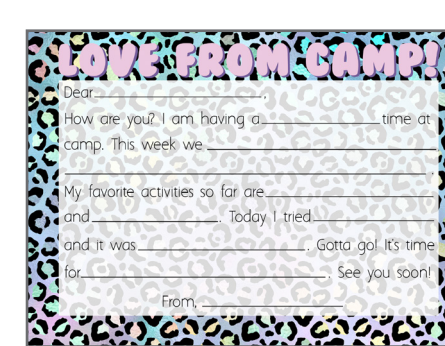 LOVE FROM CAMP!
Dear____________________.
How are you? I am having a______________time at
camp. This week we ___________________________
___________________________________________.
My favorite activities so far are____________________
and_______________. Today I tried_______________
and it was____________________. Gotta go! It's time
for_____________________________. See you soon!
From, _________________